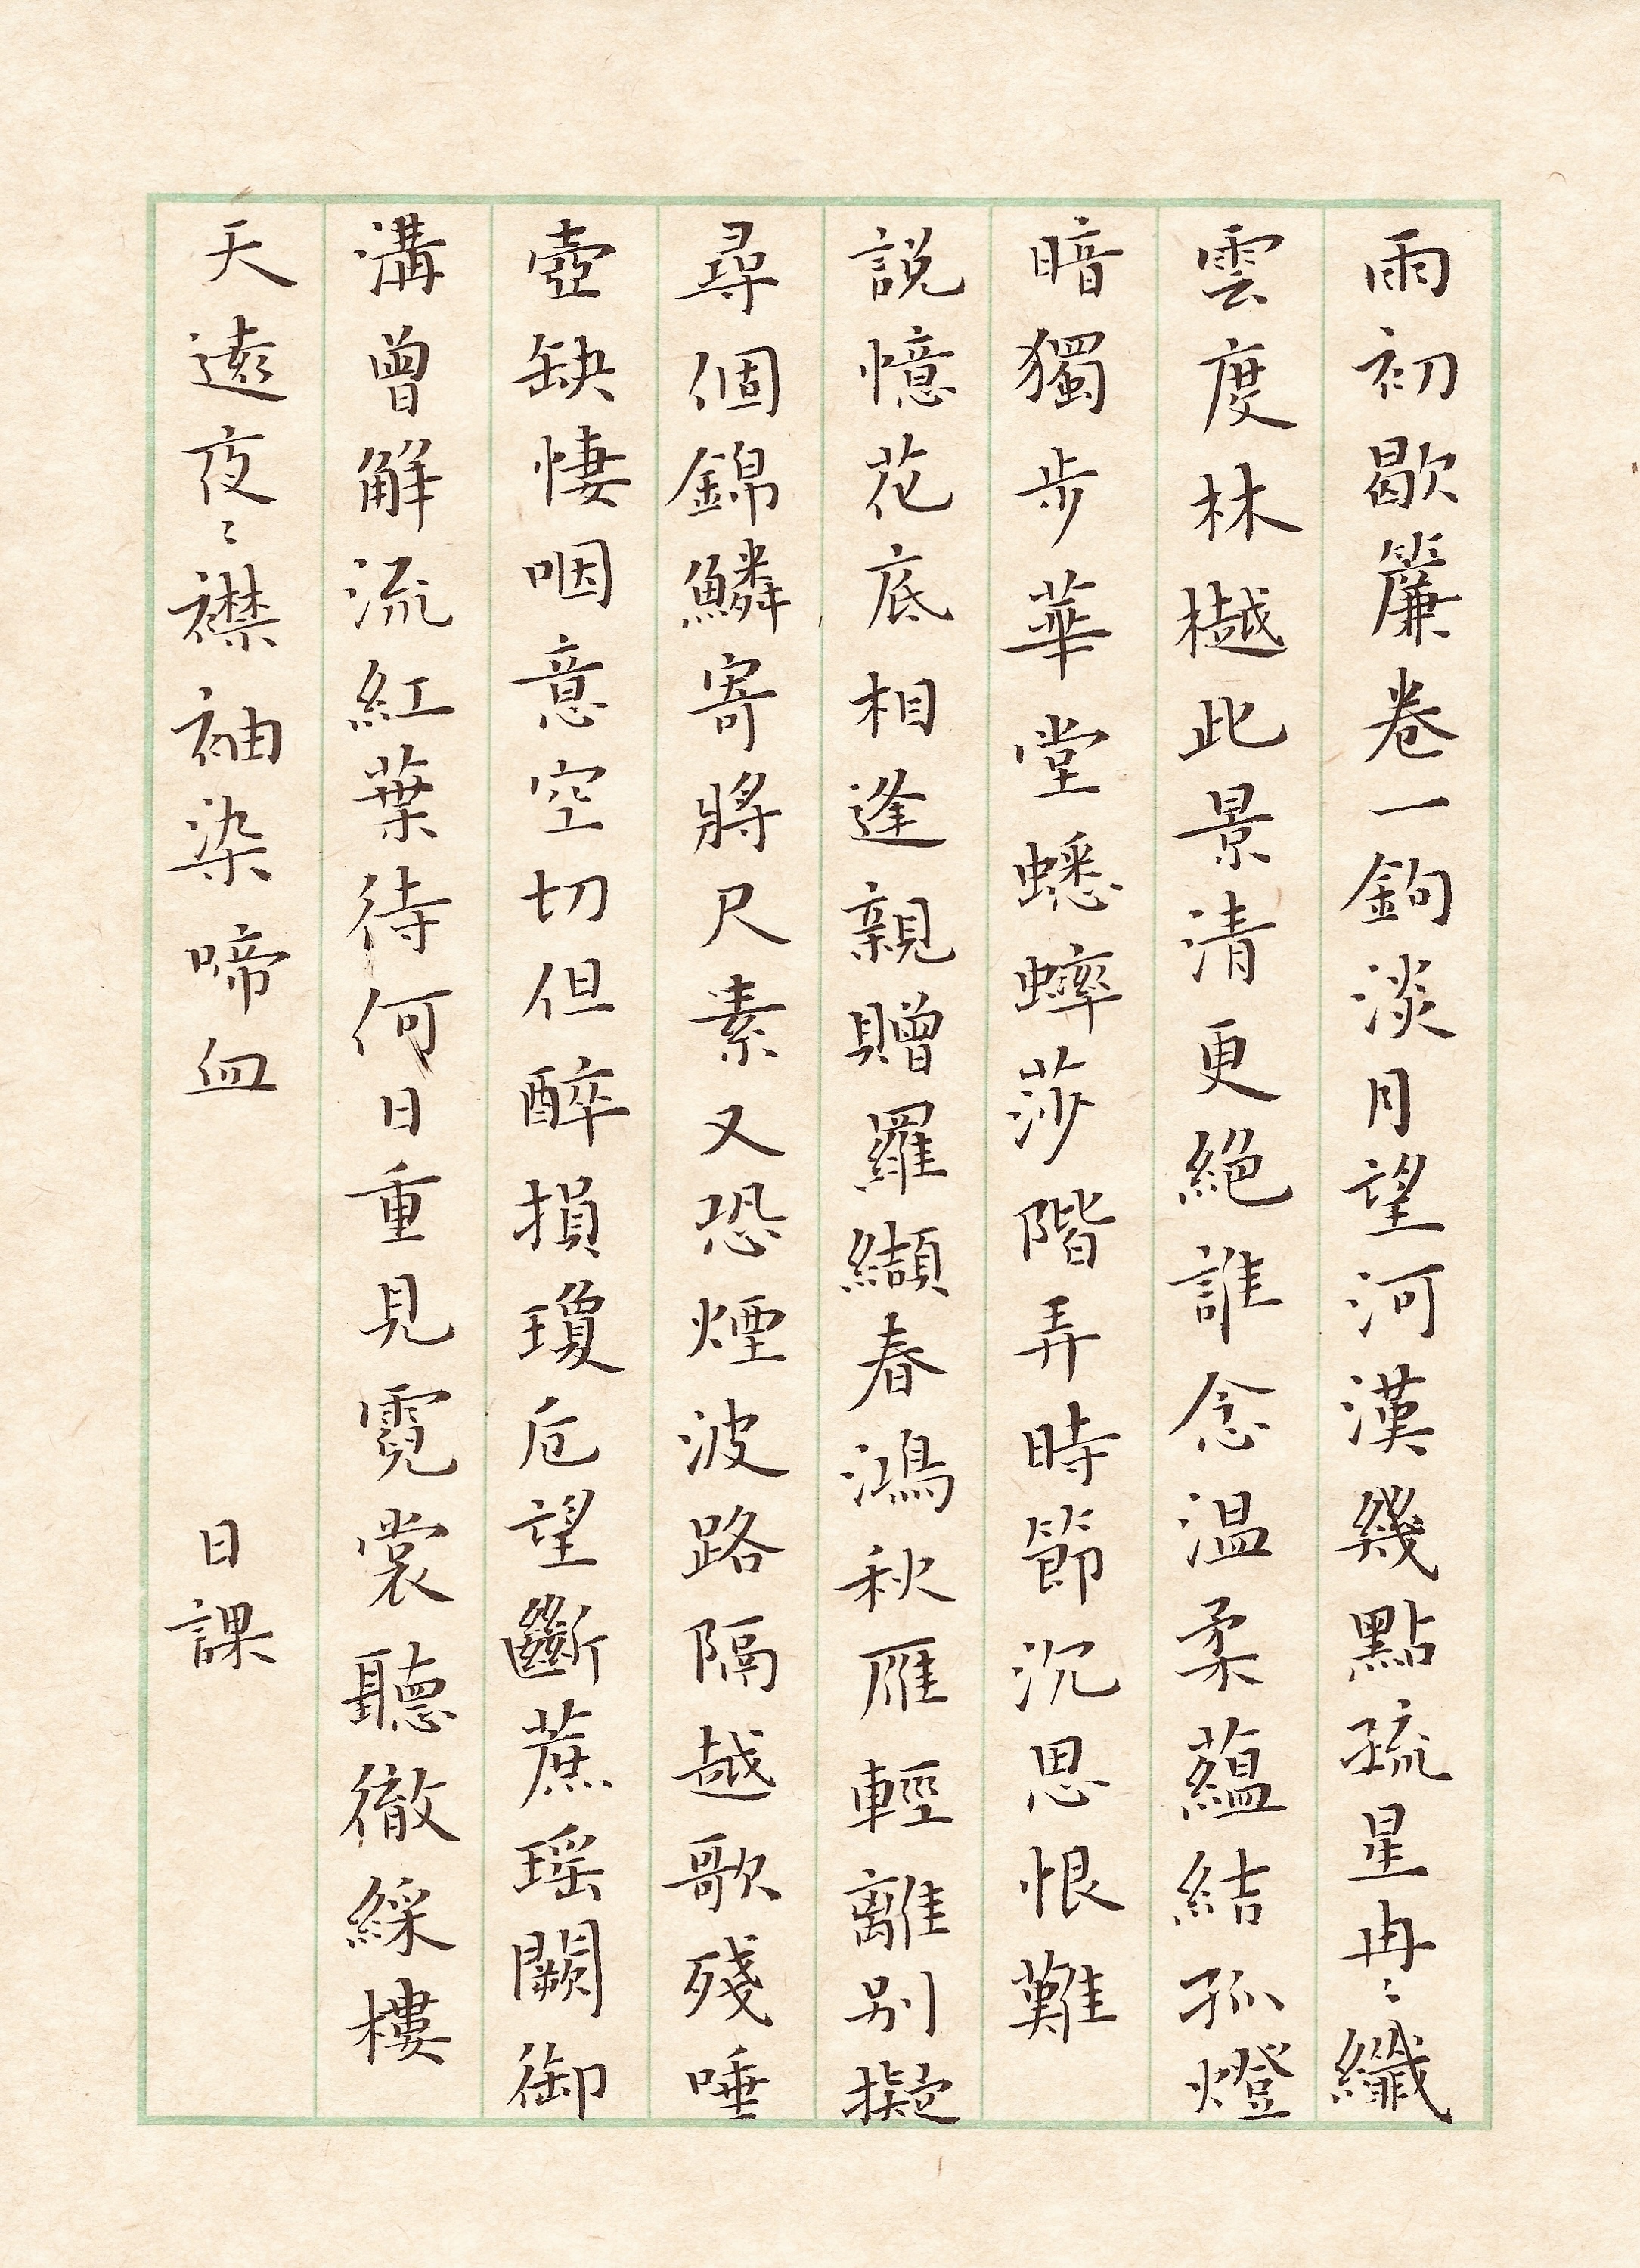 雨初歇簾卷一鉤淡月望河漢幾點疏星冉〻纖
雲度林樾此景清更絕誰念溫柔蘊結孤燈
暗獨步華堂蟋蟀莎階弄時節沉思恨難
說憶花底相逢親贈羅纈春鴻秋雁輕離別擬
尋個錦鱗寄將尺素又恐煙波路隔越歌殘唾
壺缺悽咽意空切但醉損瓊卮望斷蔗瑤闕御
溝曾解流紅葉待何日重見霓裳聽徹綵樓
天遠夜〻襟袖染啼血
日課